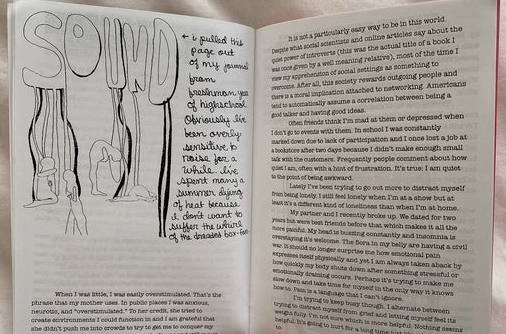 SOUND
← i pulled this
page out
of my journal
from
freshman year
of highschool
Obviously i've
been overly
sensitive to
noise for a
while. i've
spent many a
summer dying
of heat because
i don't want to
suffer the whirl
of the dreaded box-fan
When I was little, I was easily overstimulated. That's the
phrase that my mother uses. In public places I was anxious,
neurotic, and "overstimulated." To her credit, she tried to
create environments I could function in and I am grateful that
she didn't push me into crowds to try to get me to conquer my
It is not a particularly easy way to be in this world.
Despite what social scientists and online articles say about the
quiet power of introverts (this was the actual title of a book I
was once given by a well meaning relative), most of the time I
view my apprehension of social settings as something to
overcome. After all, this society rewards outgoing people and
there is a moral implication attached to networking. Americans
tend to automatically assume a correlation between being a
good talker and having good ideas.
Often friends think I'm mad at them or depressed when
I don't go to events with them. In school I was constantly
marked down due to lack of participation and I once lost a job at
a bookstore after two days because I didn't make enough small
talk with the customers. Frequently people comment about how
quiet I am, often with a hint of frustration. It's true: I am quiet
to the point of being awkward.
Lately I've been trying to go out more to distract myself
from being lonely. I still feel lonely when I'm at a show but at
least it's a different kind of loneliness than when I'm at home.
My partner and I recently broke up. We dated for two
years but were best friends before that which makes it all the
more painful. My head is buzzing constantly and insomnia is
overstaying it's welcome. The flora in my belly are having a civil
war. It should no longer surprise me how emotional pain
expresses itself physically and yet I am always taken aback by
how quickly my body shuts down after something stressful or
emotionally draining occurs. Perhaps it's trying to make me
slow down and take time for myself in the only way it knows
how to. Pain is a language that I can't ignore.
I'm trying to keep busy though. I alternate between
trying to distract myself from grief and letting myself feel its
weight fully. I'm not sure which is more helpful. Nothing seems
helpful. It's going to hurt for a long time